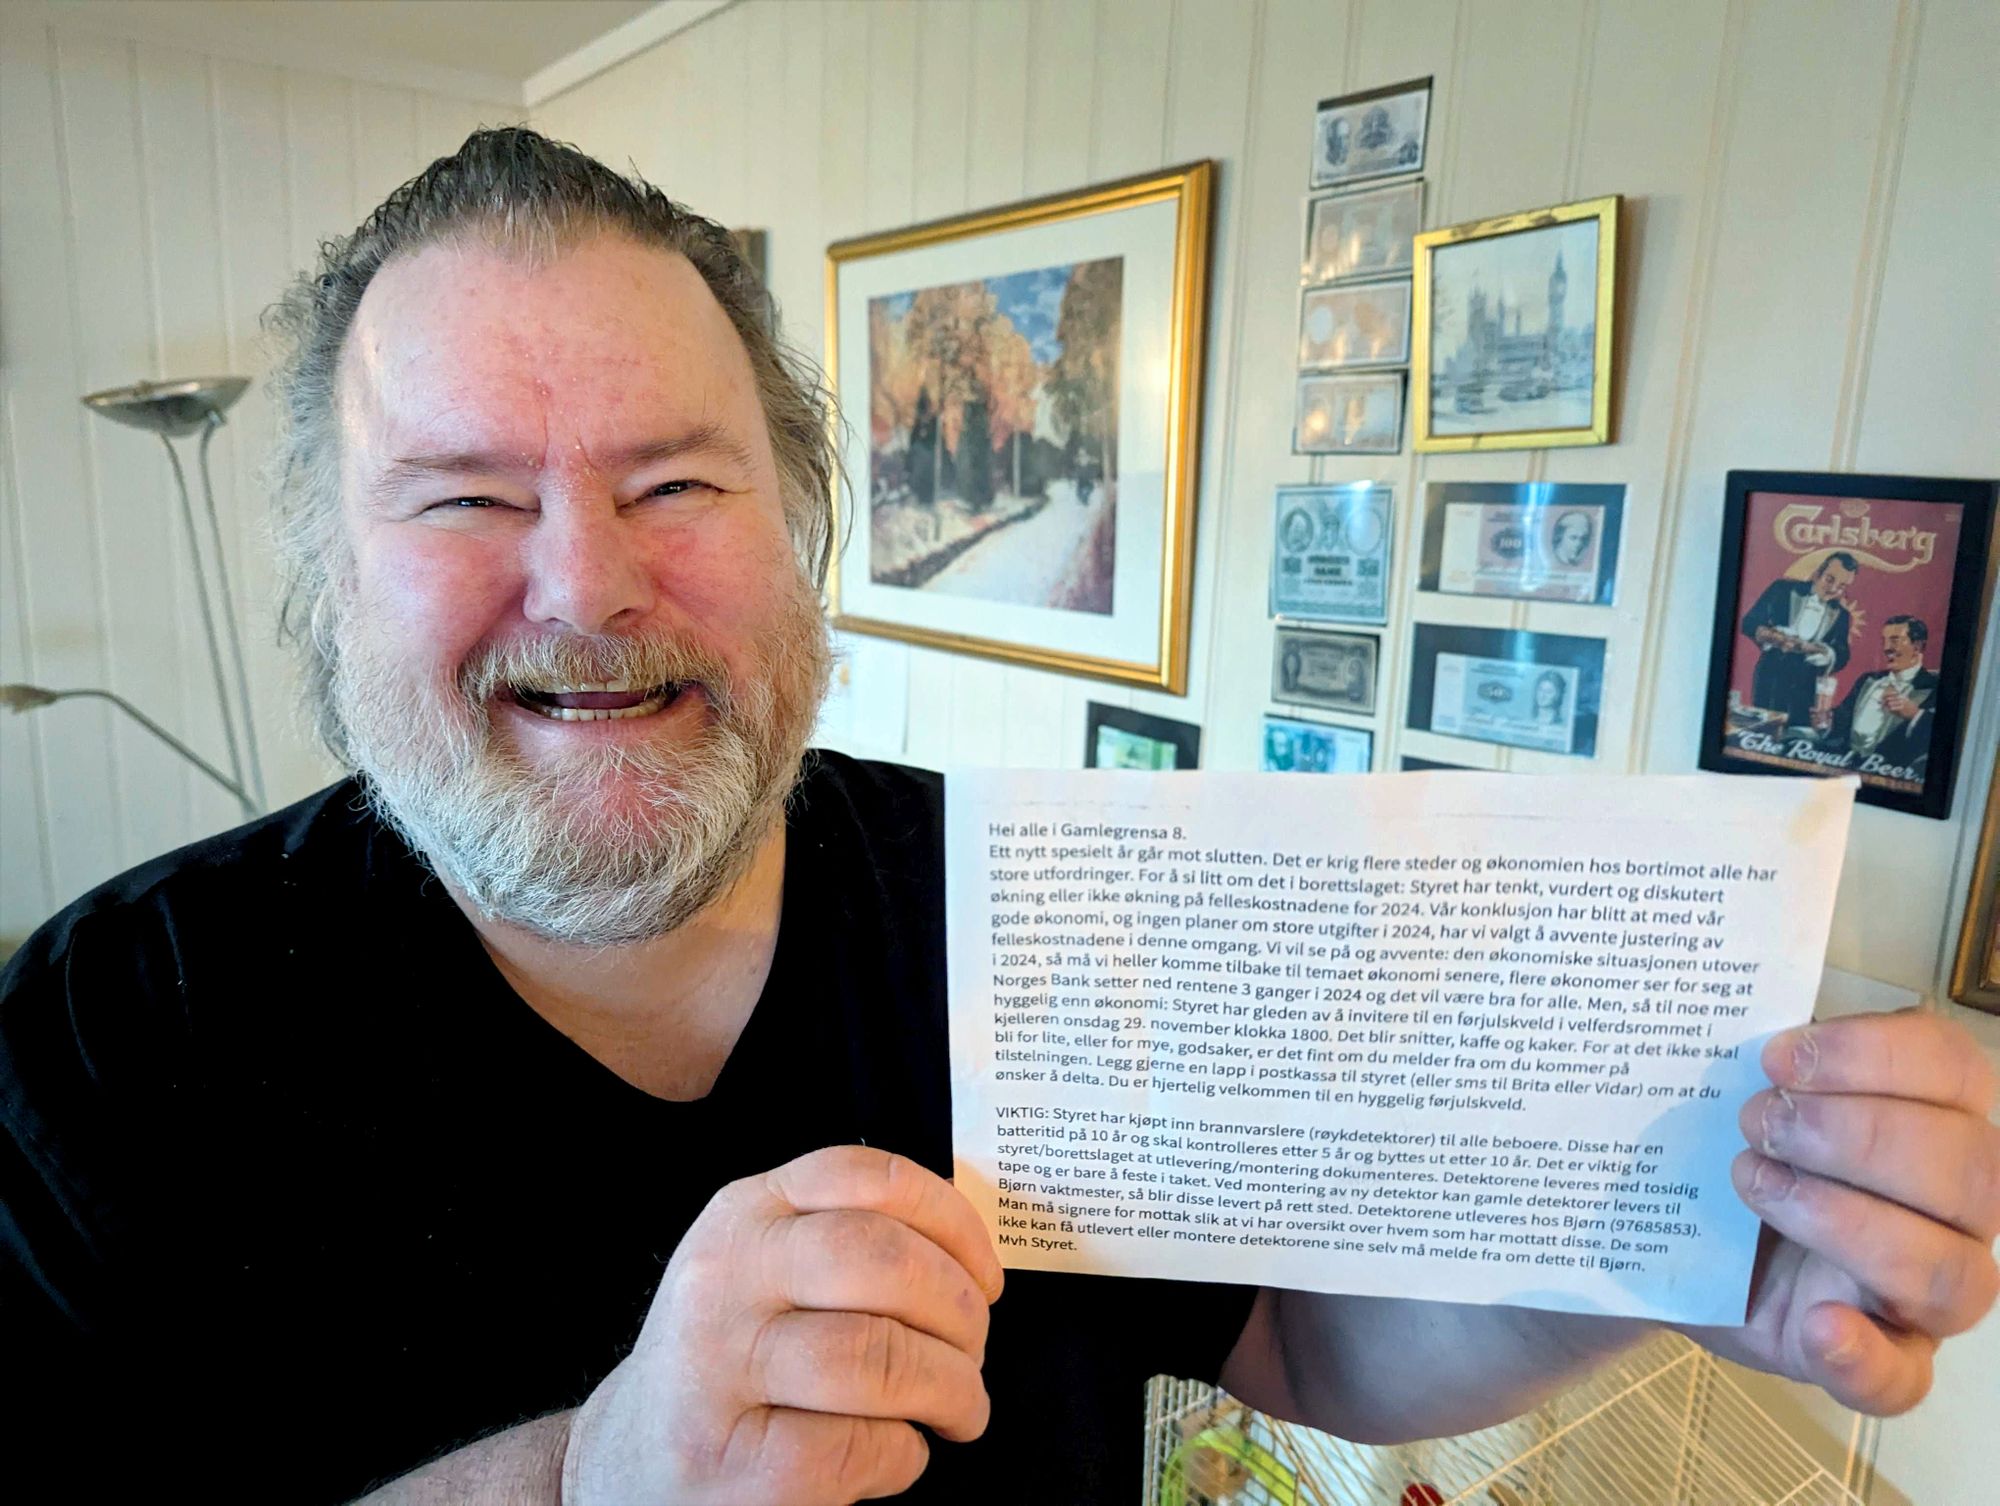 Carlsberg
The Royal Beer..
100
50
Hei alle i Gamlegrensa 8.
Ett nytt spesielt år går mot slutten. Det er krig flere steder og økonomien hos bortimot alle har
store utfordringer. For å si litt om det i borettslaget: Styret har tenkt, vurdert og diskutert
økning eller ikke økning på felleskostnadene for 2024. Vår konklusjon har blitt at med vår
gode økonomi, og ingen planer om store utgifter i 2024, har vi valgt å avvente justering av
felleskostnadene i denne omgang. Vi vil se på og avvente: den økonomiske situasjonen utover
i 2024, så må vi heller komme tilbake til temaet økonomi senere, flere økonomer ser for seg at
Norges Bank setter ned rentene 3 ganger i 2024 og det vil være bra for alle. Men, så til noe mer
hyggelig enn økonomi: Styret har gleden av å invitere til en førjulskveld i velferdsrommet i
kjelleren onsdag 29. november klokka 1800. Det blir snitter, kaffe og kaker. For at det ikke skal
bli for lite, eller for mye, godsaker, er det fint om du melder fra om du kommer på
tilstelningen. Legg gjerne en lapp i postkassa til styret (eller sms til Brita eller Vidar) om at du
ønsker å delta. Du er hjertelig velkommen til en hyggelig førjulskveld.
VIKTIG: Styret har kjøpt inn brannvarslere (røykdetektorer) til alle beboere. Disse har en
batteritid på 10 år og skal kontrolleres etter 5 år og byttes ut etter 10 år. Det er viktig for
styret/borettslaget at utlevering/montering dokumenteres. Detektorene leveres med tosidig
tape og er bare å feste i taket. Ved montering av ny detektor kan gamle detektorer levers til
Bjørn vaktmester, så blir disse levert på rett sted. Detektorene utleveres hos Bjørn (97685853).
Man må signere for mottak slik at vi har oversikt over hvem som har mottatt disse. De som
ikke kan få utlevert eller montere detektorene sine selv må melde fra om dette til Bjørn.
Mvh Styret.